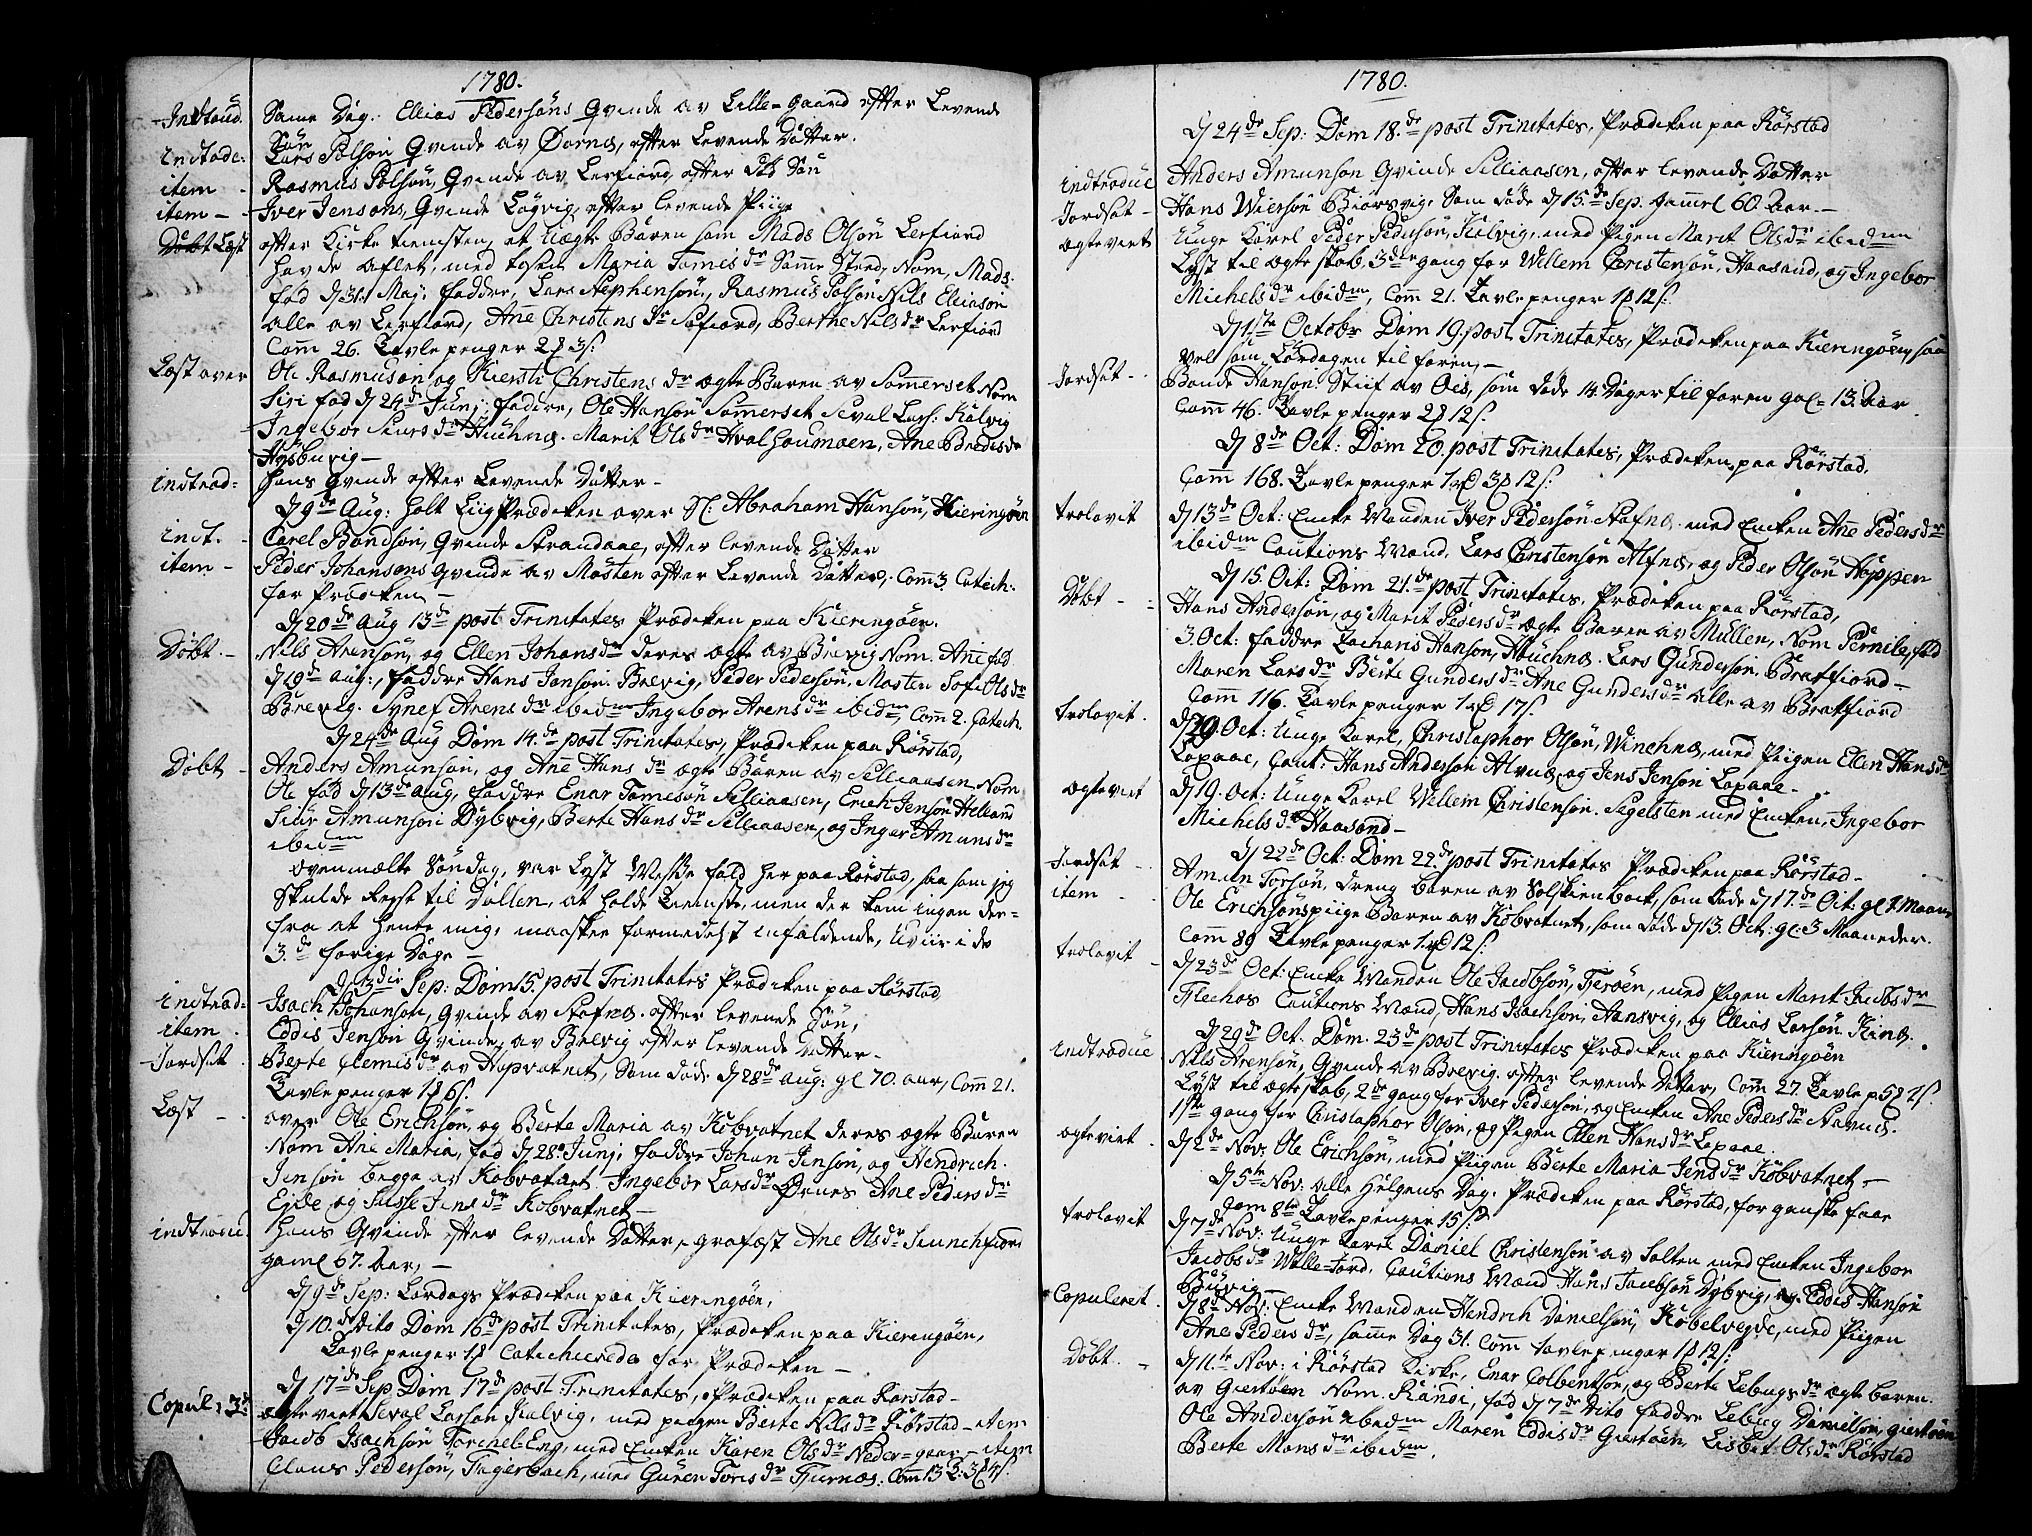 1780.
Indtroud. Same Dag. Ellias Pedersöns Qvinde av Lille-gaard efter Levende
Sön
indtode: Lars Polsön Qvinde av Örnes, efter Levende Dåtter.
item - Rasmus Polsön, Qvinde av Lerfiord efter död Sön
item - - Iver Jensöns, Qvinde Lögvig, efter levende Piige
Döbt Læst efter Kirke tienesten, et Uægte Baren som Mads Olsön Lerfiord
havde aflet, med tösen Maria Tomis dr Samme Sted, Nom, Mads.
fød d 31. Maj: faddre, Lars Stephensön, Rasmus Polsön Nils Eliasön
alle av Lerfiord, Ane Christens dr Söfiord, Berthe Nils dr Lerfiord
Com̄ 26. Tavle penger 2 ₰ 3 s.
Læst over Ole Rasmusön og Kiersti Christens dr ægte Baren av Som̄erset Nom
Siri fød d 24de Junj: faddre, Ole Hansön Som̄erset Sival Lars: Kalvig
Ingebor Siurs dr Huuhnæs. Marit Ols dr Hvalhoumoen, Ane Bredis dr
Høsburvig -
indtrod= hans Qvinde efter Levende Dåtter -
d 9de Aug: holt Liig Prædiken over Sl: Abraham Hansön, Kieringöen
indt. - Carel Bondsön, Qvinde Strandaae, efter levende Dåtter
item - Peder Johansöns Qvinde av Måsten efter Levende Dåtter, Com̄ 3. Catech:
for Prædiken -
d 20de Aug 13de post Trinitates Prædiken paa Kieringöen.
Döbt. - Nils Arensön, og Ellen Johans dr deres ægte av Brevig Nom. Ane fød
d 19de Aug:, faddre Hans Jonsön Brevig, Peder Pedersön, Mosten Sofi Ols dr
Brevig. Synef Arens dr ibidm Ingebor Arens dr ibidm, Com̄ 2. Catech.
d 24de Aug Dom 14.de post Trinitates, Prædiken paa Rörstad,
Döbt - Anders Amunsön, og Ane Hans dr ægte Baren av Selliaasen, Nom
Ole fød d 13de Aug, faddre Enar Tomesön Selliaasen, Erich Jensön Helland
Siur Amunsön Dybvig, Berte Hans dr Selliaasen, og Inger Amuns dr
ibidm
ovenmælte Söndag, var Lyst Messe fald her paa Rörstad, saa som jeg
Skulde Reyst til Dallen, at holde Tieneste, men der kom ingen der-
fra at hente mig, maaskee formedelst infaldende, Uviir i de
3.de forige Dage -
d 3die Sep: Dom 15. post Trinitates Prædiken paa Rörstad,
indtrod= Isach Johansön, Qvinde av Stafnæs. efter levende Sön,
item . Eddis Jensön Qvinde, av Brevig efter levende Dåtter -
Jordset . Berte Clemis dr av Hopvatnet, Som döde d 28de Aug: gl 70. aar, Com̄ 21.
Tavle penger 1 ₰ 6 s.
Læst - . over Ole Erichsön, og Berte Maria av Kobvatnet deres ægte Baren
Nom Ane Maria, fød d 28. Junj; faddre Johan Jensön, og Hendrich
Jensön begge av Kobvatnet. Ingebor Lars dr Örnes Ane Peders dr
Ejde og Sitse Jens dr Kobvatnet -
indtrodu. hans Qvinde efter levende Dåtter, - grafæst Ane Ols dr Seunchfiord
gaml 67. aar, -
d 9de Sep: Lördags Prædiken paa Kieringöen,
d 10.de dito Dom 16de post Trinitates, Prædiken paa Kieringöen,
Tavle penger 1 ₰ Catechicerede for Prædiken -
d 17de Sep Dom 17de post Trinitates, Prædiken paa Rörstad -
Copul: 3de ægte viet Seval Larsön Kalvig, med pigen Berte Nils dr Rörstad - item
Jacob Isachsön Torchel-Eng, med Encken Karen Ols dr Neder-gaar - item
Claus Pedersön, Fagerbach, med Guren Toris dr Tiurnæs. Com̄ 13 T: 3 ₰ 4 s.
1780.
d 24de Sep: Dom 18.de post Trinitates, Prædiken paa Rörstad
indtroduc Anders Amunsön Qvinde Selliaasen, efter levende Dåtter
Jordset - Hans Wiersön Biörsvig, Som döde d 15.de Sep. gammel 60. aar. -
ægteviet Unge Karel Peder Pedersön, Kalvig, med Pigen Marit Ols dr ibidem
Lyst til ægteskab 3de gang for Willem Christensön, Haasand, og Ingebor
Michels dr ibidm, Com̄ 21. Tavle penger 1 ₰ 12 s:
d 1ste Octobr Dom 19. post Trinitates, Prædiken paa Kieringöen, saa
vel som Lördagen til foren, -
Jordset - . Bonde Hansön Stiif av Oeis, som döde 14. Dager til foren gal= 13. aar
Com̄ 46. Tavle penger 2 ₰ 12 s.
d 8de Oct: Dom 20. post Trinitates, Prædiken paa Rörstad,
Com̄ 168. Tavle penger 1 rd 3 ₰ 12 s:
trolovit d 13de Oct: Encke Manden Iver Pedersön Stafnæs. med Encken Ane Peders dr
ibidm Cautions Mænd, Lars Christensön Alfnæs, og Peder Olsön Hoppen
d 15. Oct: Dom 21.de post Trinitates, Prædiken paa Rörstad,
Döbt - - Hans Andersön, og Marit Peders dr ægte Baren av Mullen, Nom Pernile, fød
3. Oct: faddre Zacharis Hansön, Huuchnæs. Lars Gundersön. Bratfiord -
Maren Lars dr Berte Gunders dr Ane Gunders dr alle av Bratfiord
Com̄ 116. Tavle penger 1 rd 17 s.
trolovit. d 19. Oct: Unge Karel, Christophor Olsön, Winchnæs, med Piigen Ellen Hans dr
Lopaae, Caut: Hans Andersön Alvnæs og Jens Jensön Lopaae -
ægteviet d 19. Oct: Unge Karel Willem Christensön. Segelsten med Encken, Ingebor
Michels dr Haasand -
d 22de Oct: Dom 22.de post Trinitates Prædiken paa Rörstad -
Jordset - . Amun Torsön, dreng baren av Solskienbach, som döde d 17.de Oct: gl 7. Maan:
item - . Ole Erichsöns piige Baren av Kobvatnet, som döde d 13. Oct: gl: 3 Maaneder.
Com̄ 89 Tavle penger 1 rd 12 s:
trolovit - d 23de Oct: Encke Manden Ole Jacobsön, Tieröen, med Pigen Marit Jacobs dr
Flechos Cautions Mænd, Hans Isachsön, Aansvig, og Ellias Larsön. Kinæs.
d 29de Oct. Dom. 23de post Trinitates Prædiken paa Kieringöen
indtroduc Nils Arensön, Qvinde av Brevig. efter levende Dåtter, Com̄ 27. Tavle p 5 ₰ 2 s.
Lyst til ægteskab, 2de gang for Iver Pedersön, og Encken Ane Peders dr Stavnæs.
1ste gang for Christophor Olsön, og Pigen Ellen Hans dr Lopaae.
ægteviet . d 2de Nov: Ole Erichsön, med Piigen Berte Maria Jens dr Kobvatnet, -
d 5te Nov: alle Helgens Dag. Prædiken paa Rörstad, for ganske faae
som 8te Tavle penger 15 s.
trolovit d 7de Nov: Unge Karel Daniel Christensön av Salten med Encken Ingebor
Jacobs dr Wille-Jord, Cautions Mænd Hans Jacobsön Dybvig, og Eddis Hansön
Buvig -
Copuleret . d 8de Nov: Encke Manden Hendrich Danielsön, Kobelvegde, med Piigen
Ane Peders dr, samme Dag 31. Com̄ tavle penger 1 ₰ 12 s:
Döbt. - d 11.te Nov: i Rörstad Kirke, Enar Colbentsön, og Berte Lebugs dr ægte baren
av Giertöen Nom. Randi, fød d 7de dito faddre Lebug Danielsön, Giertöen
Ole Andersön ibidm Maren Eddis dr Giertöen, Lisbet Ols dr Rörstad
Berte Mons dr ibidm.